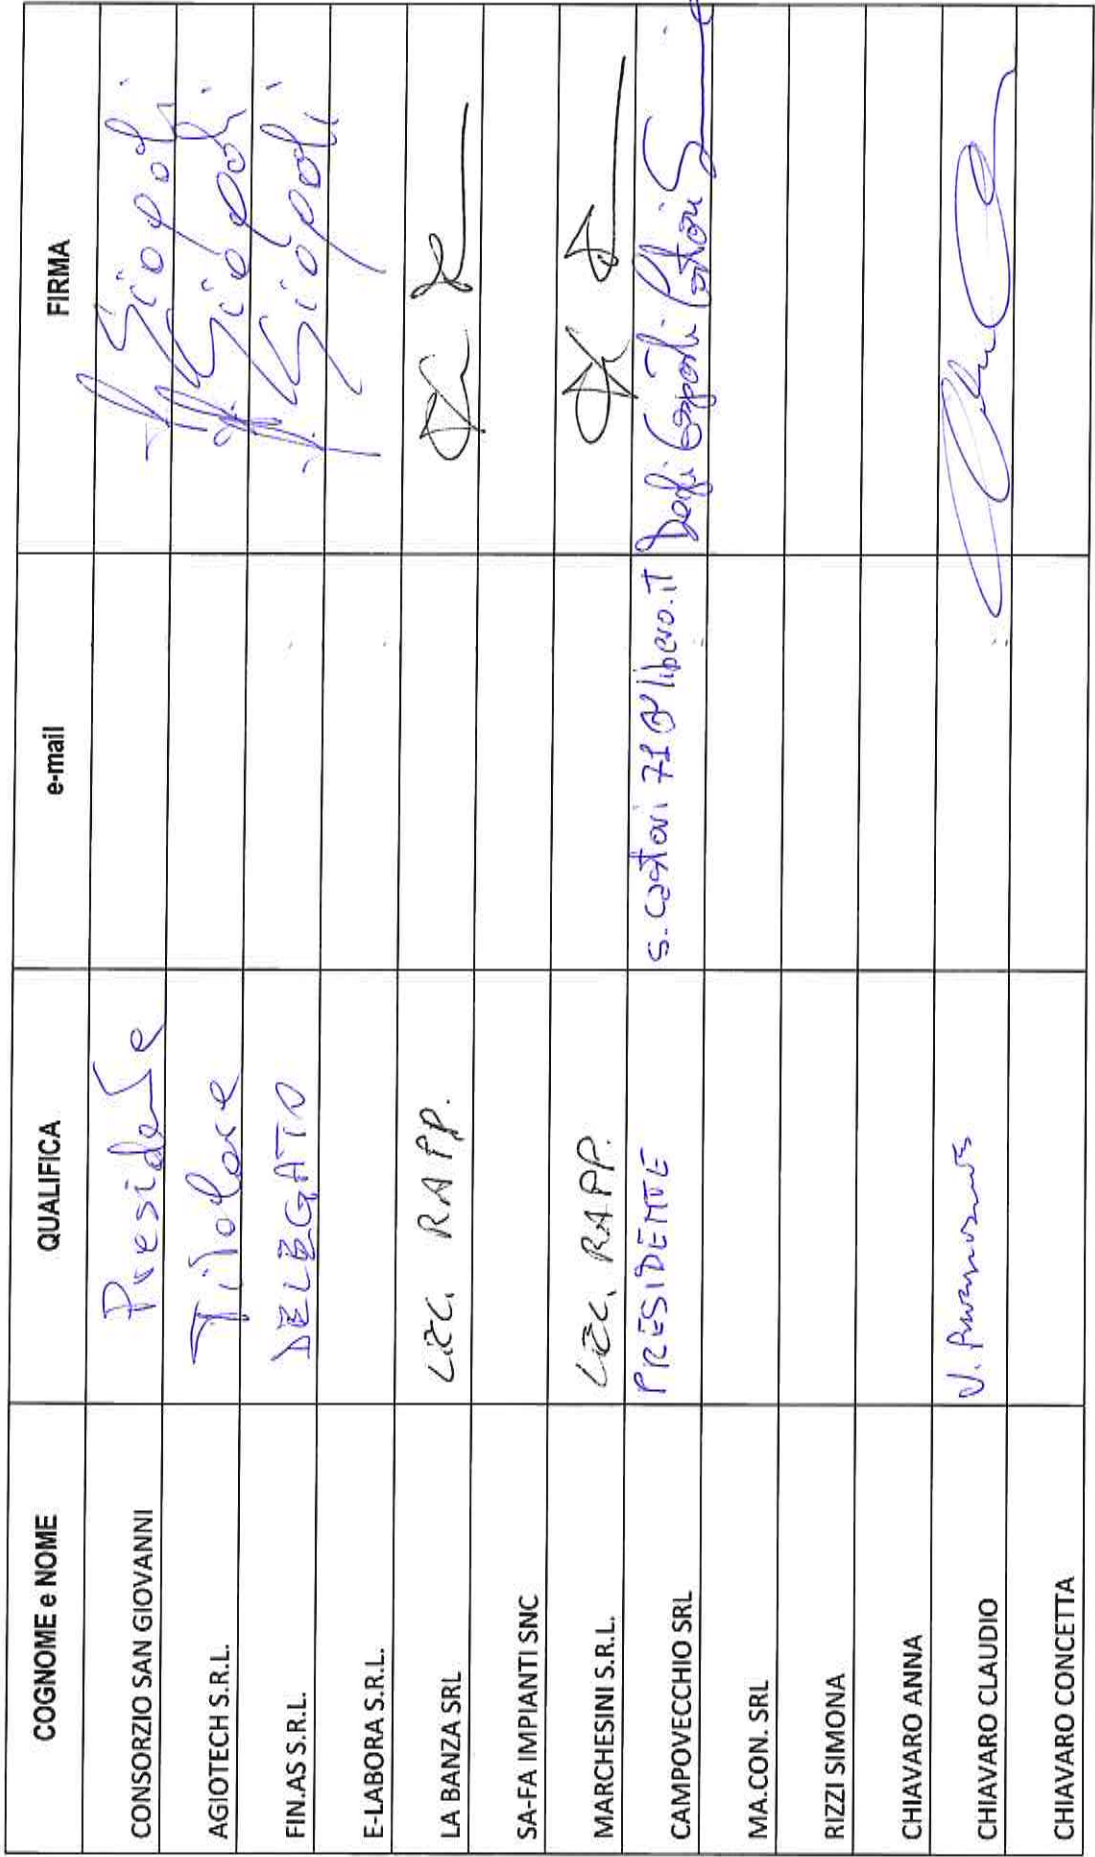 COGNOME e NOME QUALIFICA e-mail FIRMA
CONSORZIO SAN GIOVANNI Presidente Siopoli
AGIOTECH S.R.L. Titolare Siopoli
FIN.AS S.R.L. DELEGATO Siopoli
E-LABORA S.R.L.
LA BANZA SRL LEG. RAPP.
SA-FA IMPIANTI SNC
MARCHESINI S.R.L. LEG. RAPP.
CAMPOVECCHIO SRL PRESIDENTE s.castori71@libero.it
MA.CON. SRL
RIZZI SIMONA
CHIAVARO ANNA
CHIAVARO CLAUDIO
CHIAVARO CONCETTA